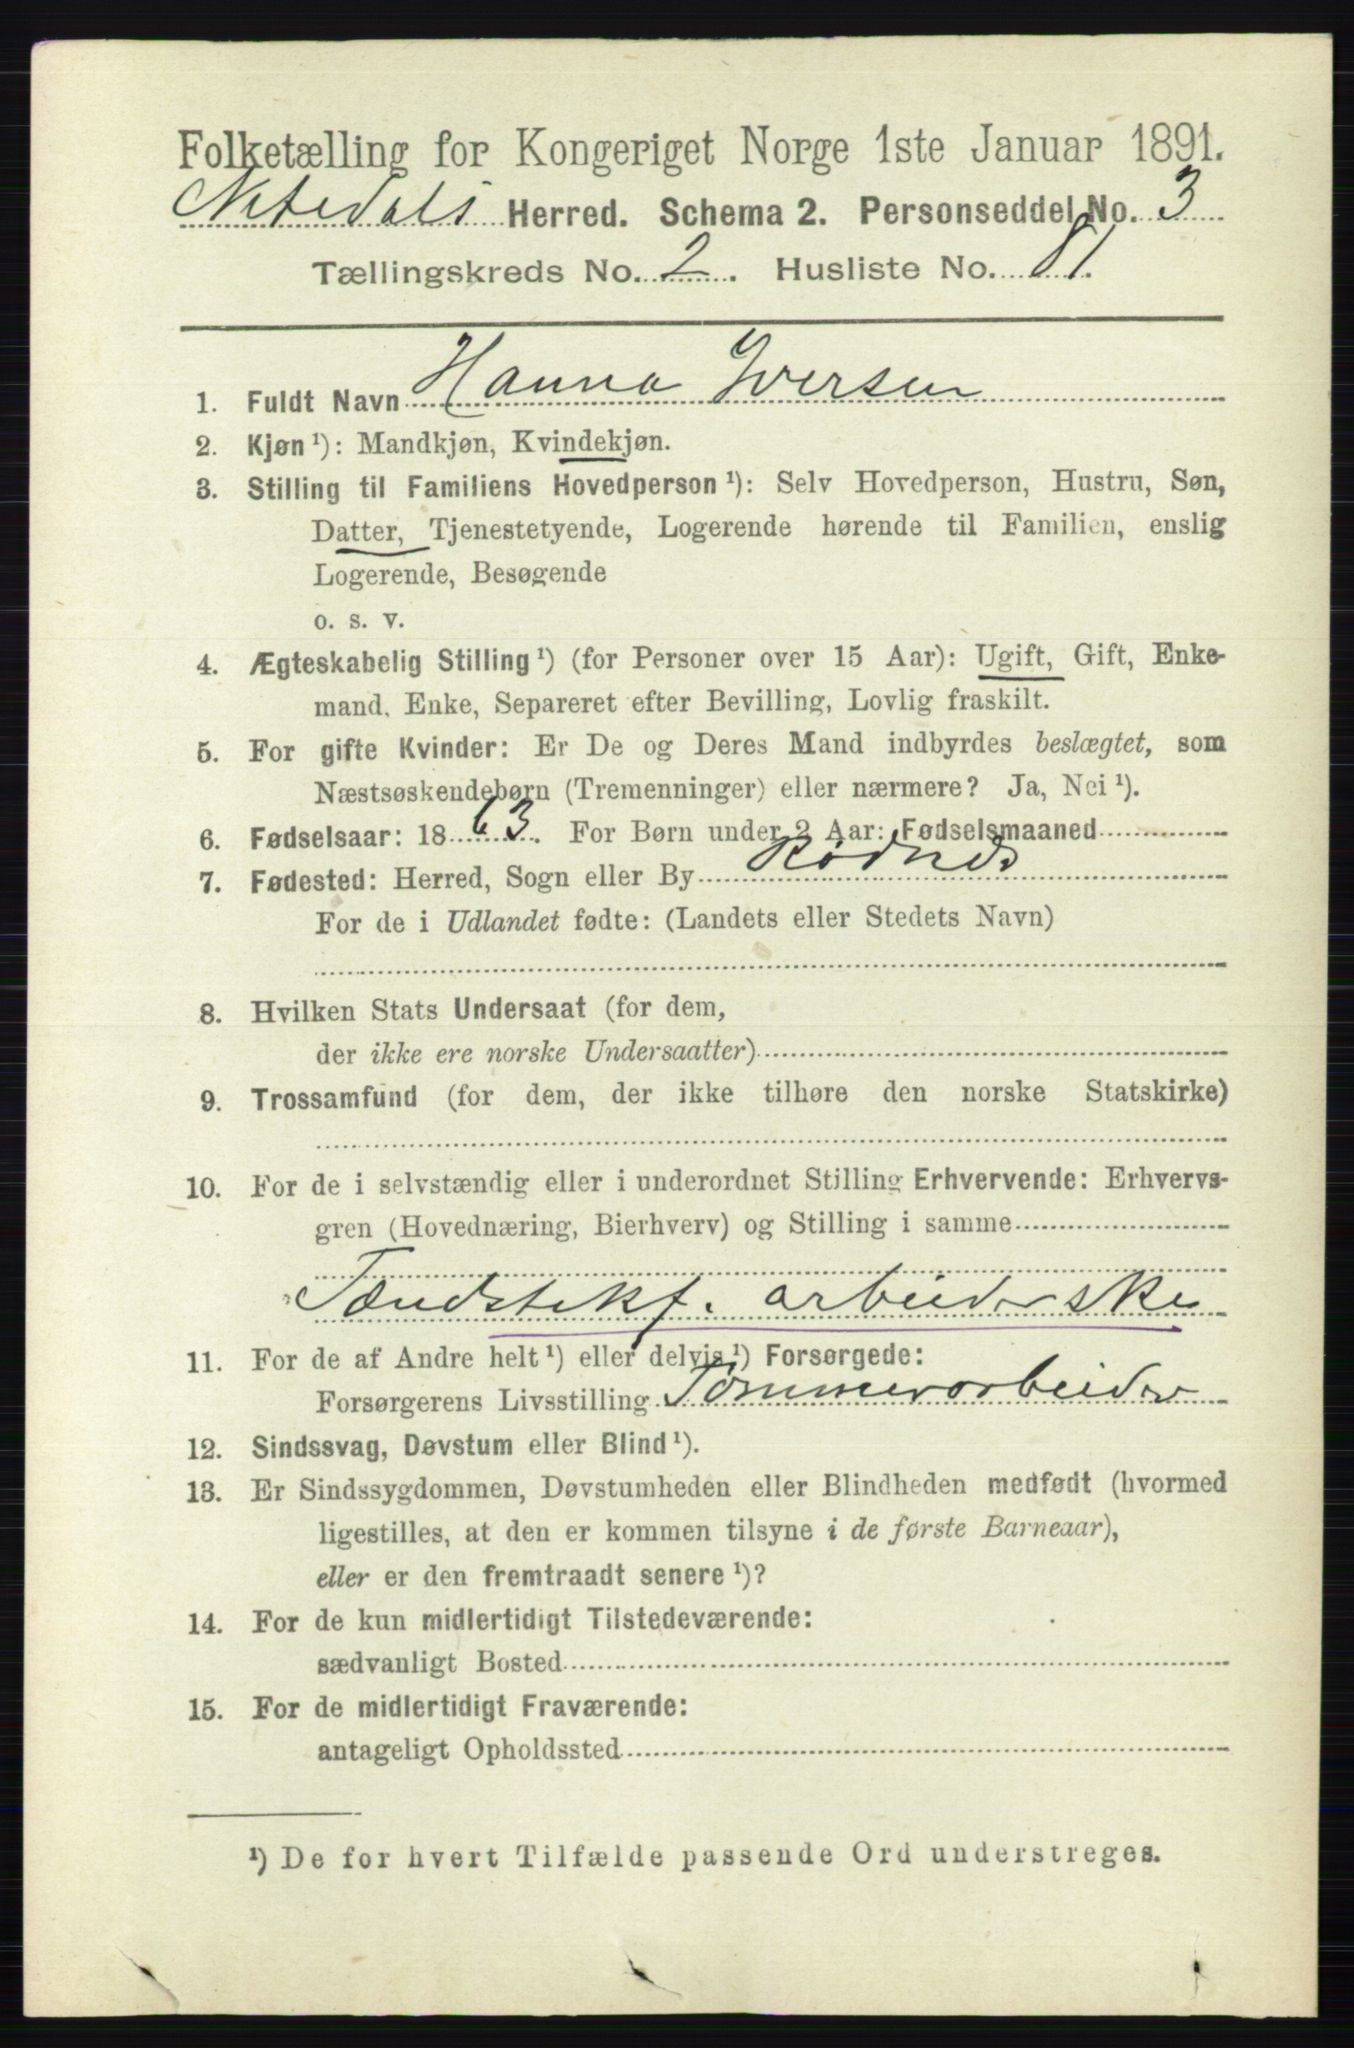 Folketælling for Kongeriget Norge 1ste Januar 1891.
Nitedals Herred. Schema 2. Personseddel No. 3
Tællingskreds No. 2. Husliste No. 81.
1. Fuldt Navn Hanna Iversen
2. Kjøn ¹): Mandkjøn, Kvindekjøn.
3. Stilling til Familiens Hovedperson ¹): Selv Hovedperson, Hustru, Søn,
Datter, Tjenestetyende, Logerende hørende til Familien, enslig
Logerende, Besøgende
o. s. v.
4. Ægteskabelig Stilling ¹) (for Personer over 15 Aar): Ugift, Gift, Enke-
mand, Enke, Separeret efter Bevilling, Lovlig fraskilt.
5. For gifte Kvinder: Er De og Deres Mand indbyrdes beslægtet, som
Næstsøskendebørn (Tremenninger) eller nærmere? Ja, Nei ¹).
6. Fødselsaar: 1863. For Børn under 2 Aar: Fødselsmaaned
7. Fødested: Herred, Sogn eller By Rødnes
For de i Udlandet fødte: (Landets eller Stedets Navn)
8. Hvilken Stats Undersaat (for dem,
der ikke ere norske Undersaatter)
9. Trossamfund (for dem, der ikke tilhøre den norske Statskirke)
10. For de i selvstændig eller i underordnet Stilling Erhvervende: Erhvervs-
gren (Hovednæring, Bierhverv) og Stilling i samme
Tændstikf. arbeiderske
11. For de af Andre helt ¹) eller delvis ¹) Forsørgede:
Forsørgerens Livsstilling Tømmerarbeider
12. Sindssvag, Døvstum eller Blind ¹).
13. Er Sindssygdommen, Døvstumheden eller Blindheden medfødt (hvormed
ligestilles, at den er kommen tilsyne i de første Barneaar),
eller er den fremtraadt senere ¹)?
14. For de kun midlertidigt Tilstedeværende:
sædvanligt Bosted
15. For de midlertidigt Fraværende:
antageligt Opholdssted
¹) De for hvert Tilfælde passende Ord understreges.